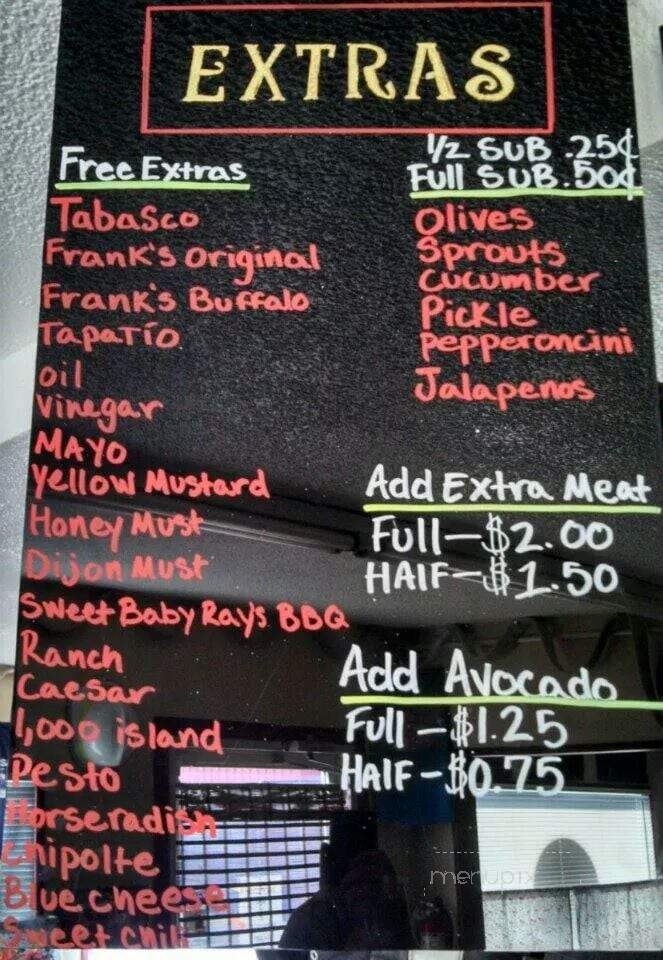 EXTRAS
Free Extras
Tabasco
Frank's Original
Frank's Buffalo
Tapatío
oil
Vinegar
MAYO
Yellow Mustard
Honey Must
Dijon Must
Sweet Baby Ray's BBQ
Ranch
Caesar
1,000 island
Pesto
Horseradish
Chipolte
Blue cheese
Sweet Chili
1/2 SUB .25¢
Full SUB .50¢
Olives
Sprouts
Cucumber
Pickle
Pepperoncini
Jalapenos
Add Extra Meat
Full-$2.00
HAlF-$1.50
Add Avocado
Full-$1.25
HAlF-$0.75
menupix